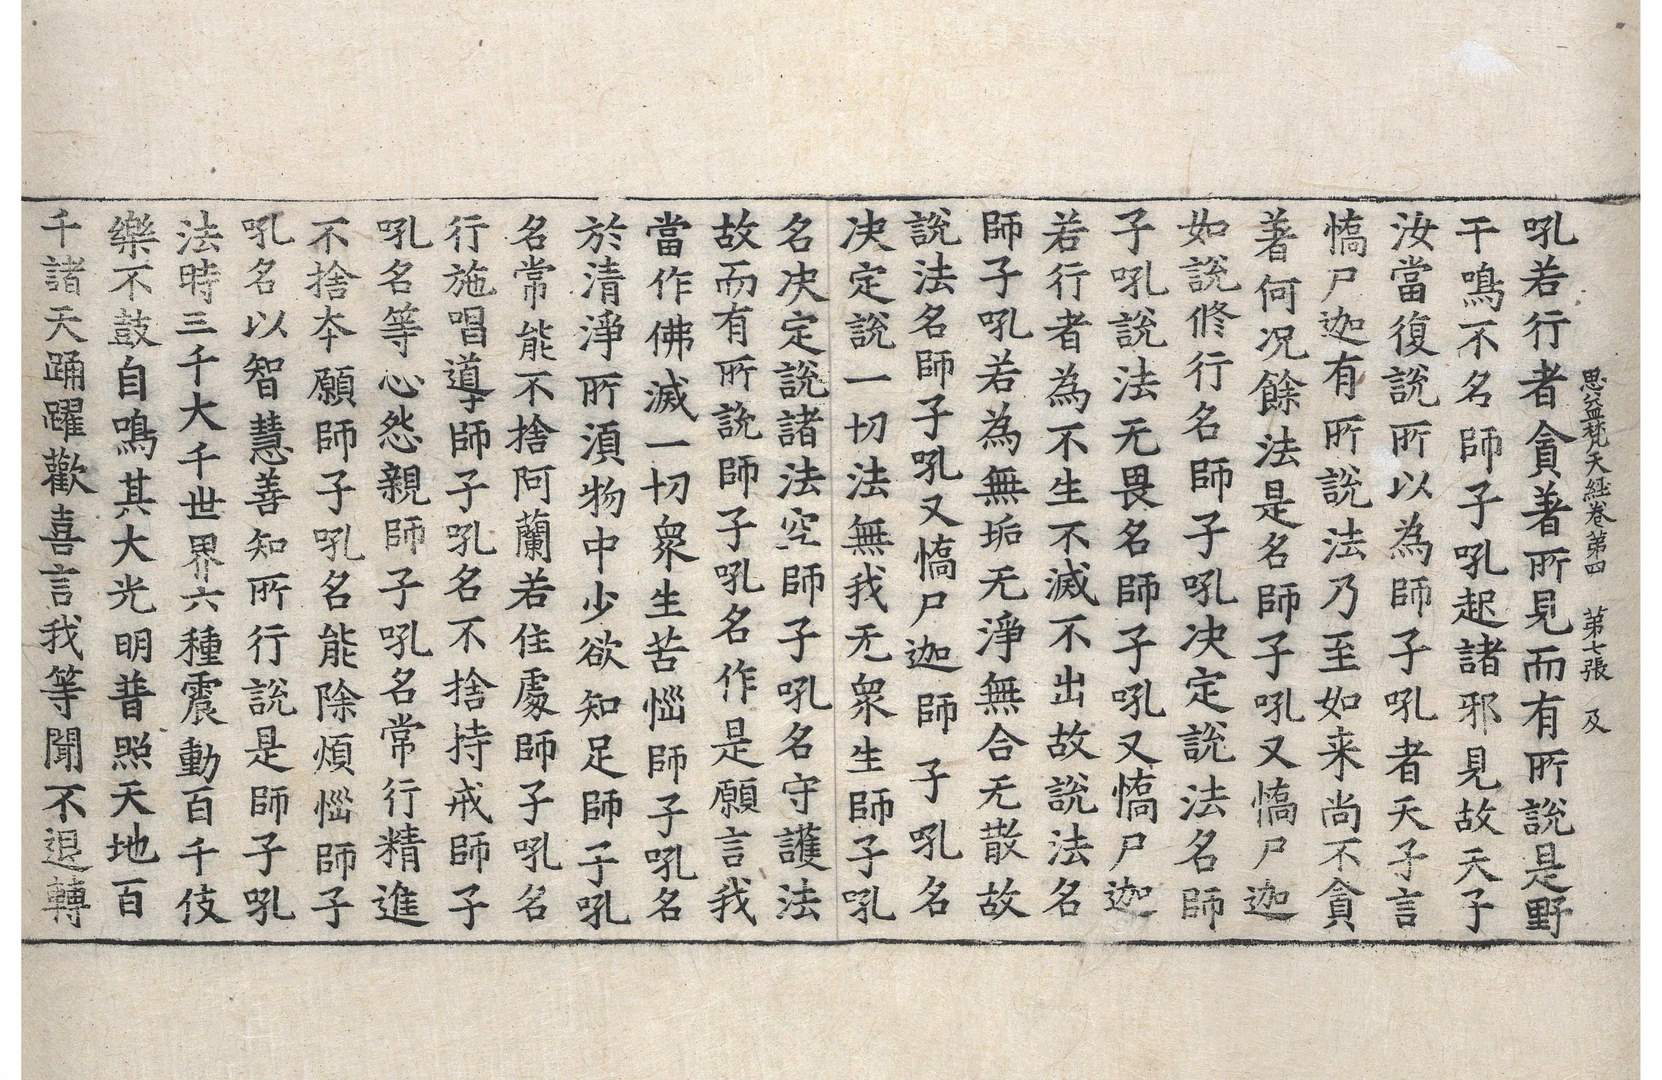 思益梵天經卷第四　第七張　及
吼若行者貪著所見而有所說是野
干鳴不名師子吼起諸邪見故天子
汝當復說所以為師子吼者天子言
憍尸迦有所說法乃至如来尚不貪
著何况餘法是名師子吼又憍尸迦
如說修行名師子吼决定說法名師
子吼說法无畏名師子吼又憍尸迦
若行者為不生不滅不出故說法名
師子吼若為無垢无淨無合无散故
說法名師子吼又憍尸迦師子吼名
决定說一切法無我无衆生師子吼
名决定說諸法空師子吼名守護法
故而有所說師子吼名作是願言我
當作佛滅一切衆生苦惱師子吼名
於清淨所須物中少欲知足師子吼
名常能不捨阿蘭若住處師子吼名
行施唱導師子吼名不捨持戒師子
吼名等心怨親師子吼名常行精進
不捨夲願師子吼名能除煩惱師子
吼名以智慧善知所行說是師子吼
法時三千大千世界六種震動百千伎
樂不鼓自鳴其大光明普照天地百
千諸天踊躍歡喜言我等聞不退轉